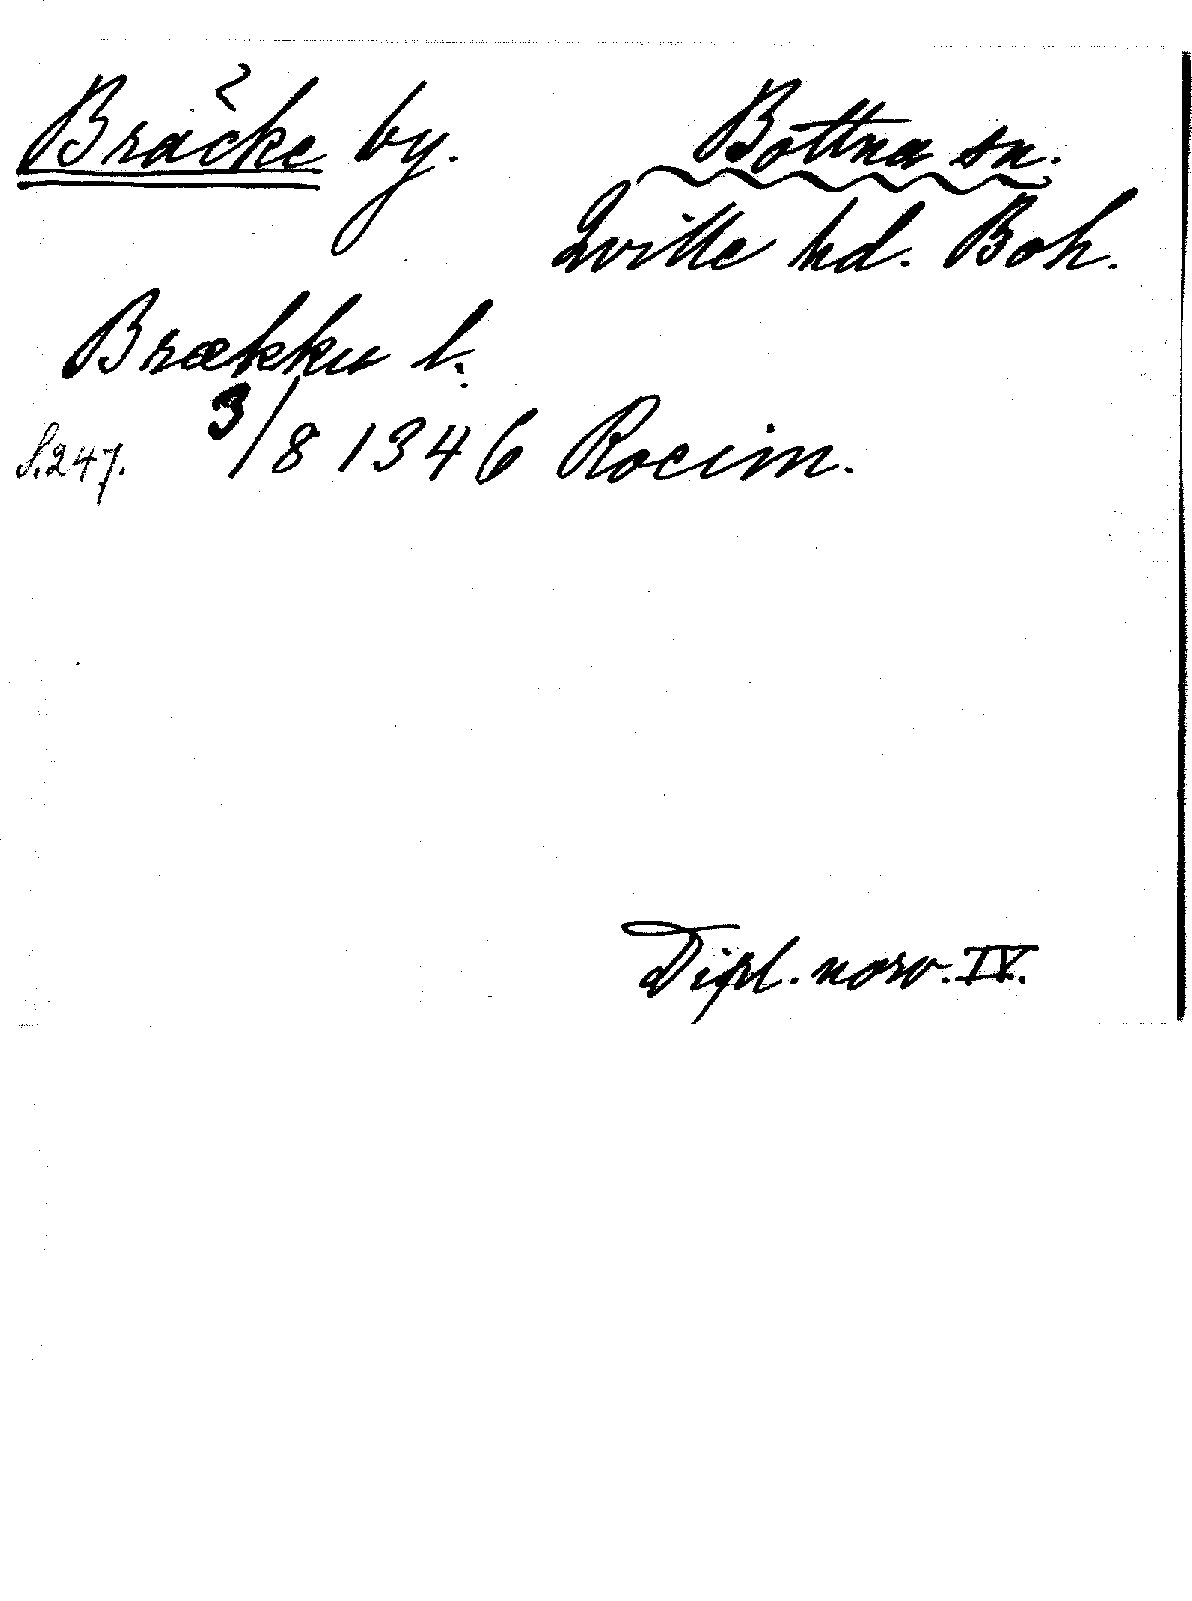 Bräcke by.
Bottna sn.
Qville hd. Boh.
Brækku l.
S. 247. 3/8 1346 Rocim.
Dipl. norv. IV.